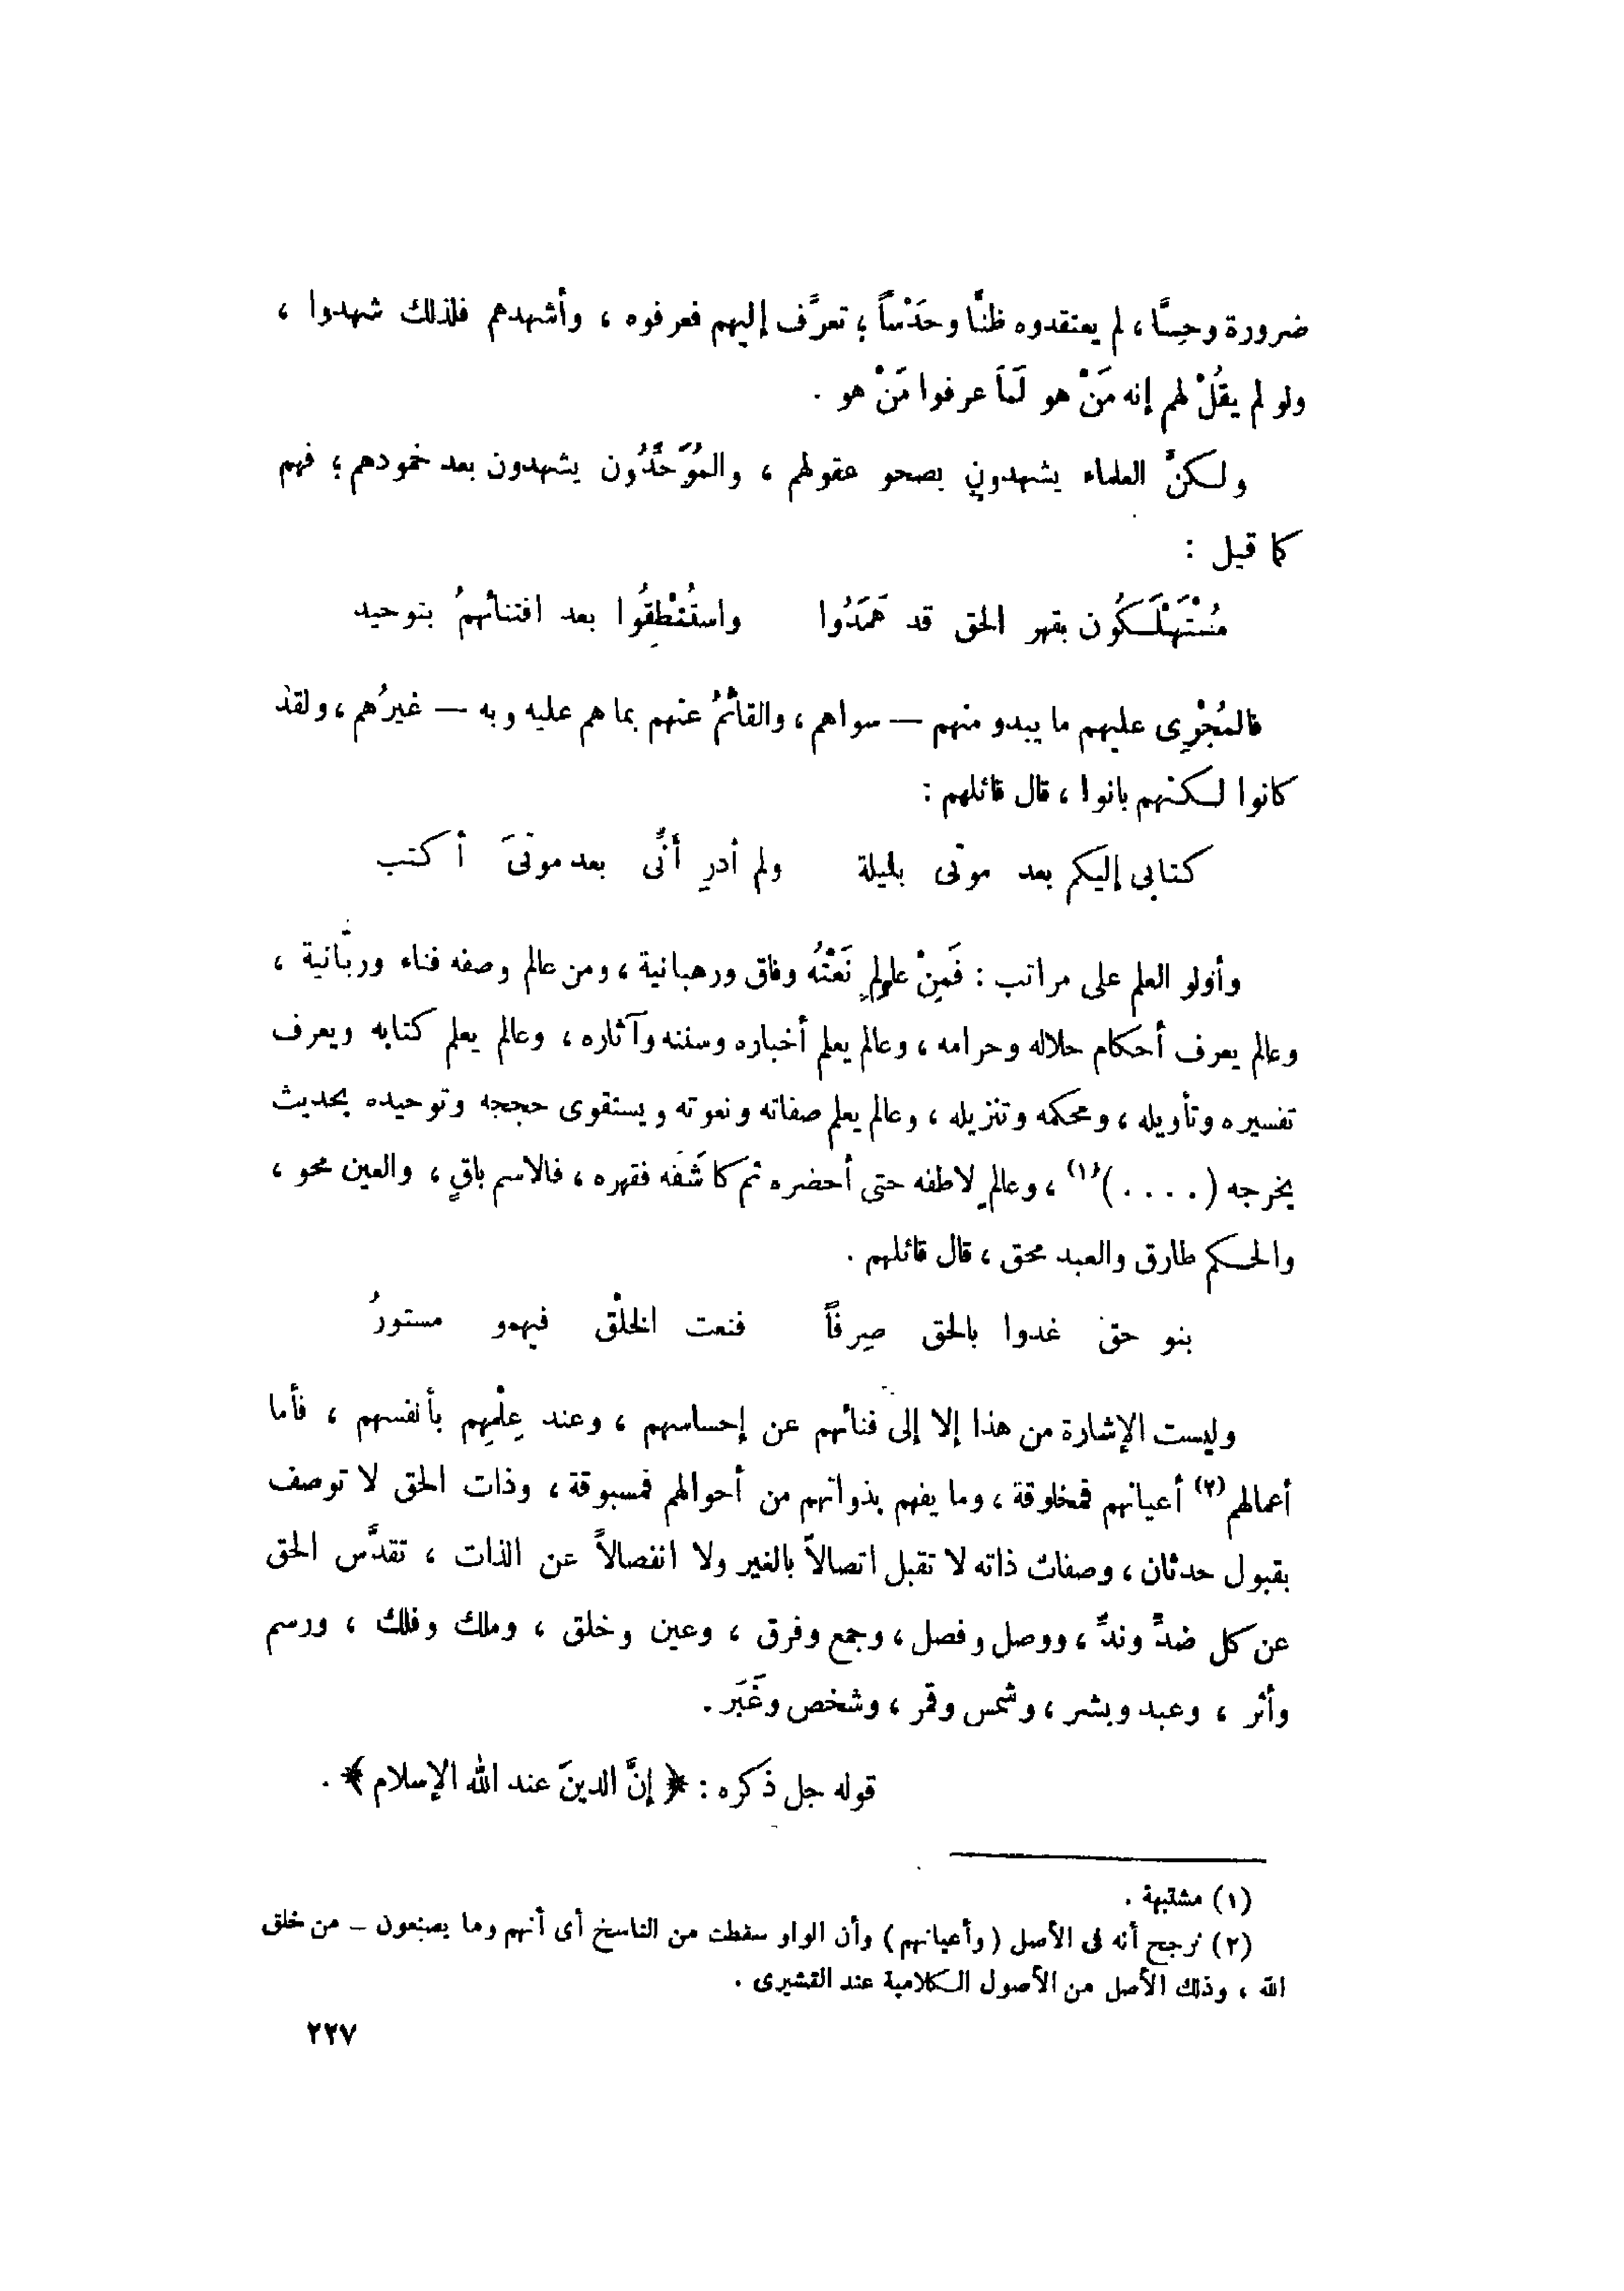 ضرورة وحِسًّا ، لم يعتقدوه ظنًّا وحَدْساً ؛ تعرَّف إليهم فعرفوه ، وأشهدهم فلذلك شهدوا ،
ولو لم يقُلْ لهم إنه مَنْ هو لَمَا عرفوا مَنْ هو .
ولكنَّ العلماء يشهدون بصحو عقولهم ، والمُوَحِّدُون يشهدون بعد خمودهم ؛ فهم
كما قيل :
مُسْتَهْلَكُون بقهر الحق قد هَمَدُوا واستُنْطِقُوا بعد افتنائهمُ بتوحيد
فالمُجْرِى عليهم ما يبدو منهم — سواهم ، والقائمُ عنهم بما هم عليه وبه — غيرُهم ، ولقد
كانوا لكنهم بانوا ، قال قائلهم :
كتابى إليكم بعد موتى بليلة ولم أدرِ أنِّى بعد موتىَ أكتب
وأولو العلم على مراتب : فَمِنْ عالمٍ نَعْتُه وفاق ورهبانية ، ومن عالم وصفه فناء وربّانية ،
وعالم يعرف أحكام حلاله وحرامه ، وعالم يعلم أخباره وسننه وآثاره ، وعالم يعلم كتابه ويعرف
تفسيره وتأويله ، ومحكمه وتنزيله ، وعالم يعلم صفاته ونعوته ويستقوى حججه وتوحيده بحديث
يخرجه ( . . . . )(١) ، وعالم لاطفه حتى أحضره ثم كاشَفَه فقهره ، فالاسم باقٍ ، والعين محو ،
والحكم طارق والعبد محق ، قال قائلهم .
بنو حق غدوا بالحق صِرفاً فنعت الخلْق فيهمو مستورُ
وليست الإشارة من هذا إلا إلى فنائهم عن إحساسهم ، وعند عِلْمِهم بأنفسهم ، فأما
أعمالهم(٢) أعيانهم فمخلوقة ، وما يفهم بذواتهم من أحوالهم فمسبوقة ، وذات الحق لا توصف
بقبول حدثان ، وصفات ذاته لا تقبل اتصالاً بالغير ولا انفصالاً عن الذات ، تقدَّس الحق
عن كل ضدٍّ وندٍّ ، ووصل وفصل ، وجمع وفرق ، وعين وخلق ، وملك وفلك ، ورسم
وأثر ، وعبد وبشر ، وشمس وقمر ، وشخص وغَبَر .
قوله جل ذكره : ﴿ إنَّ الدينَ عند الله الإسلام ﴾ .
(١) مشتبهة .
(٢) نرجح أنه فى الأصل (وأعيانهم) وأن الواو سقطت من الناسخ أى أنهم وما يصنعون – من خلق
الله ، وذلك الأصل من الأصول الكلامية عند القشيرى .
٢٢٧